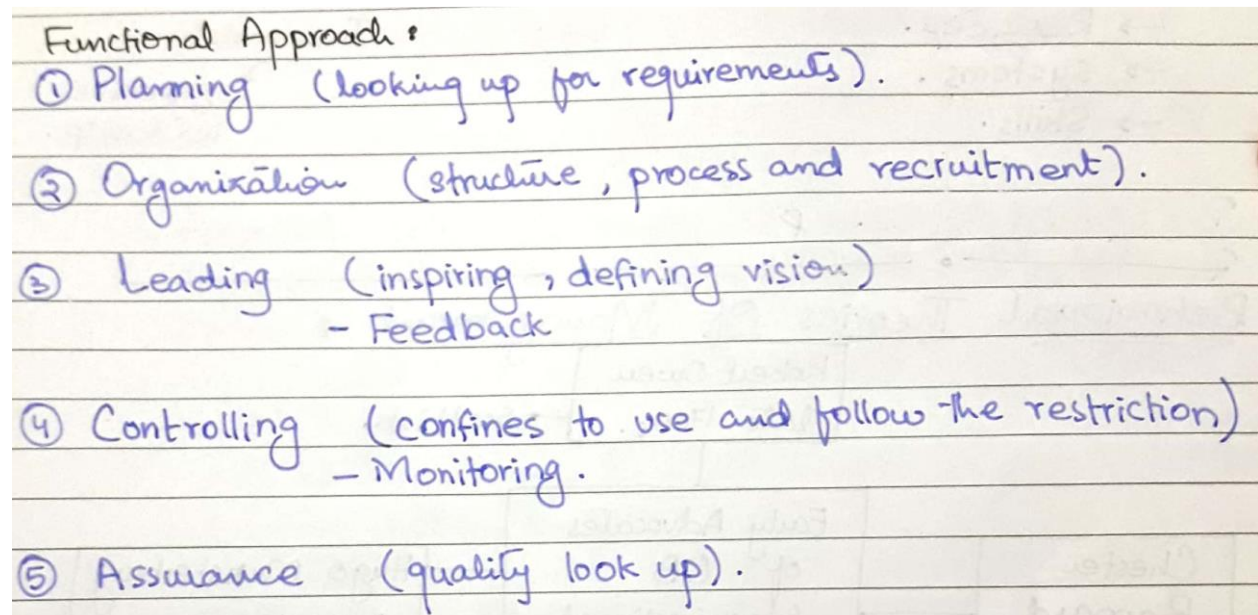 Functional Approach :
① Planning (looking up for requirements).
② Organization (structure, process and recruitment).
③ Leading (inspiring, defining vision)
- Feedback
④ Controlling (confines to use and follow the restriction)
- Monitoring.
⑤ Assurance (quality look up).